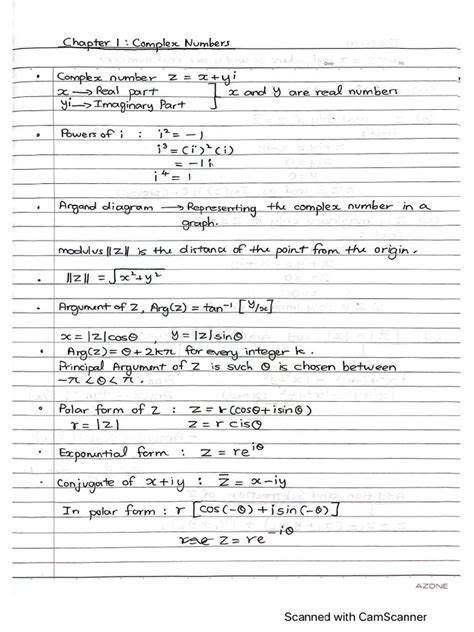 Chapter 1 : Complex Numbers
• Complex number z = x + yi
x → Real part ] x and y are real numbers
yi → Imaginary Part
• Powers of i : i² = -1
i³ = (i)²(i)
= -1i
i⁴ = 1
• Argand diagram → Representing the complex number in a
graph.
modulus ||z|| is the distance of the point from the origin.
• ||z|| = √x²+y²
• Argument of z, Arg(z) = tan⁻¹ [y/x]
x = |z|cosθ , y = |z|sinθ
• Arg(z) = θ + 2kπ for every integer k.
Principal Argument of z is such θ is chosen between
-π < θ < π.
• Polar form of z : z = r(cosθ + isinθ)
r = |z| z = r cisθ
• Exponential form : z = re^iθ
• Conjugate of x+iy : z̅ = x-iy
In polar form : r [cos(-θ) + isin(-θ)]
z = re^-iθ
AZONE
Scanned with CamScanner